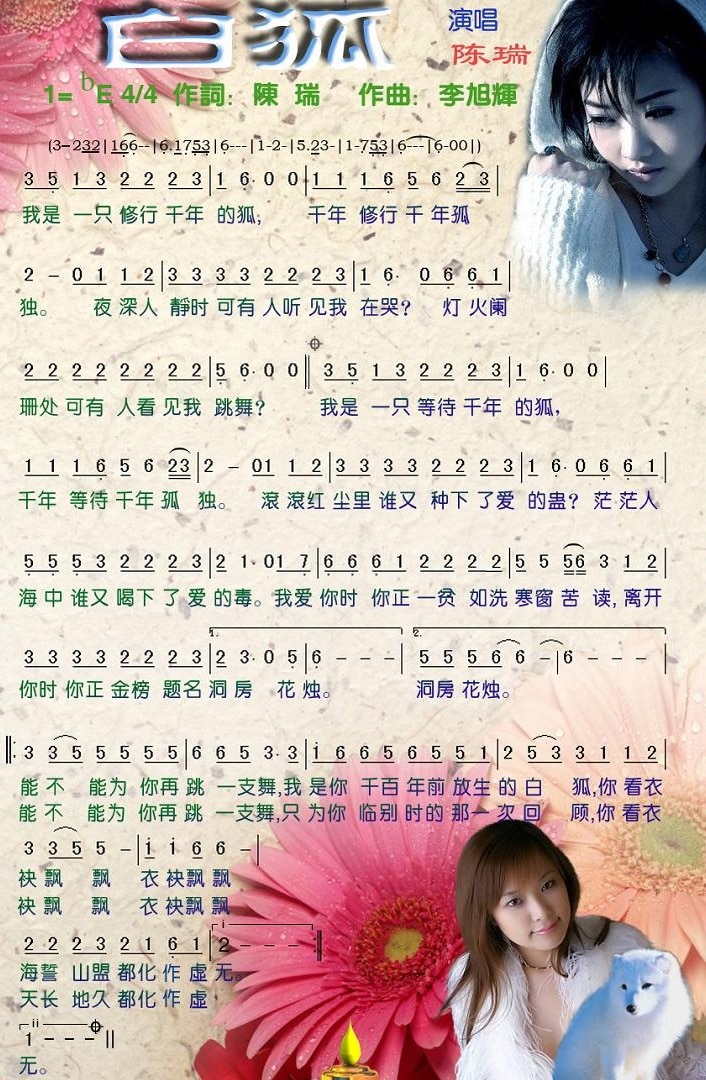 白狐
演唱
陈瑞
1= bE 4/4 作詞: 陳 瑞 作曲: 李旭輝
(3-232|166--|6.1753|6---|1-2-|5.23-|1-753|6---|6-00|)
3 5 1 3 2 2 2 3|1 6· 0 0|1 1 1 6 5 6 2 3|
我是 一只 修行 千年 的狐, 千年 修行 千 年孤
2 – 0 1 1 2|3 3 3 3 2 2 2 3|1 6· 0 6 6 1|
独。 夜 深人 静时 可有 人听 见我 在哭? 灯 火阑
2 2 2 2 2 2 2 2|5 6· 0 0‖3 5 1 3 2 2 2 3|1 6· 0 0|
珊处 可有 人看 见我 跳舞? 我是 一只 等待 千年 的狐,
1 1 1 6 5 6 23|2 – 01 1 2|3 3 3 3 2 2 2 3|1 6· 0 6 6 1|
千年 等待 千年 孤 独。 滚 滚红 尘里 谁又 种下 了爱 的蛊? 茫 茫人
5 5 5 3 2 2 2 3|2 1·01 7|6 6 6 1 2 2 2 2|5 5 56 3 1 2|
海 中 谁又 喝下 了 爱 的毒。我爱 你时 你正 一贫 如洗 寒窗 苦 读, 离开
3 3 3 3 2 2 2 3|2 3· 0 5|6 – – –|5 5 5 6 6 –|6 – – –|
1. 2.
你时 你正 金榜 题名 洞 房 花 烛。 洞房 花烛。
‖: 3 3 5 5 5 5 5|6 6 5 3·3|1 6 6 5 6 5 5 1|2 5 3 3 1 1 2|
能 不 能为 你再 跳 一支舞,我 是你 千百 年前 放生 的 白 狐,你 看衣
能 不 能为 你再 跳 一支舞,只 为你 临别 时的 那一 次 回 顾,你 看衣
3 3 5 5 –|i i 6 6 –|
袂 飘 飘 衣 袂飘 飘
袂 飘 飘 衣 袂飘 飘
2 2 2 3 2 1 6 1|2 – – –‖
i
海誓 山盟 都化 作 虚 无。
天长 地久 都化 作 虚
ii
1 – – –‖
无。